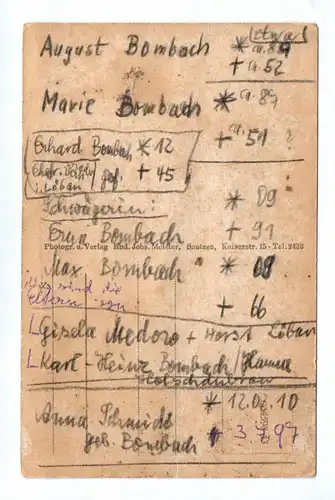 (etwa)
August Bombach * ca. 89
+ ca. 52
Marie Bombach * ca. 89
+ ca. 51 ?
Erhard Bombach * 12
gef. + 45
i. Löbau
Schwägerin:
* 09
Erna Bombach + 91
Photogr. u. Verlag Rud. Johs. Meister, Bautzen, Kaiserstr. 15 - Tel. 2438
Max Bombach * 08
das sind die
Eltern von
+ 66
Gisela Medoro + Horst Löbau
Karl-Heinz Bombach / Hanna
* 12.03.10
Anna Schmidt
geb. Bombach + 3. 97